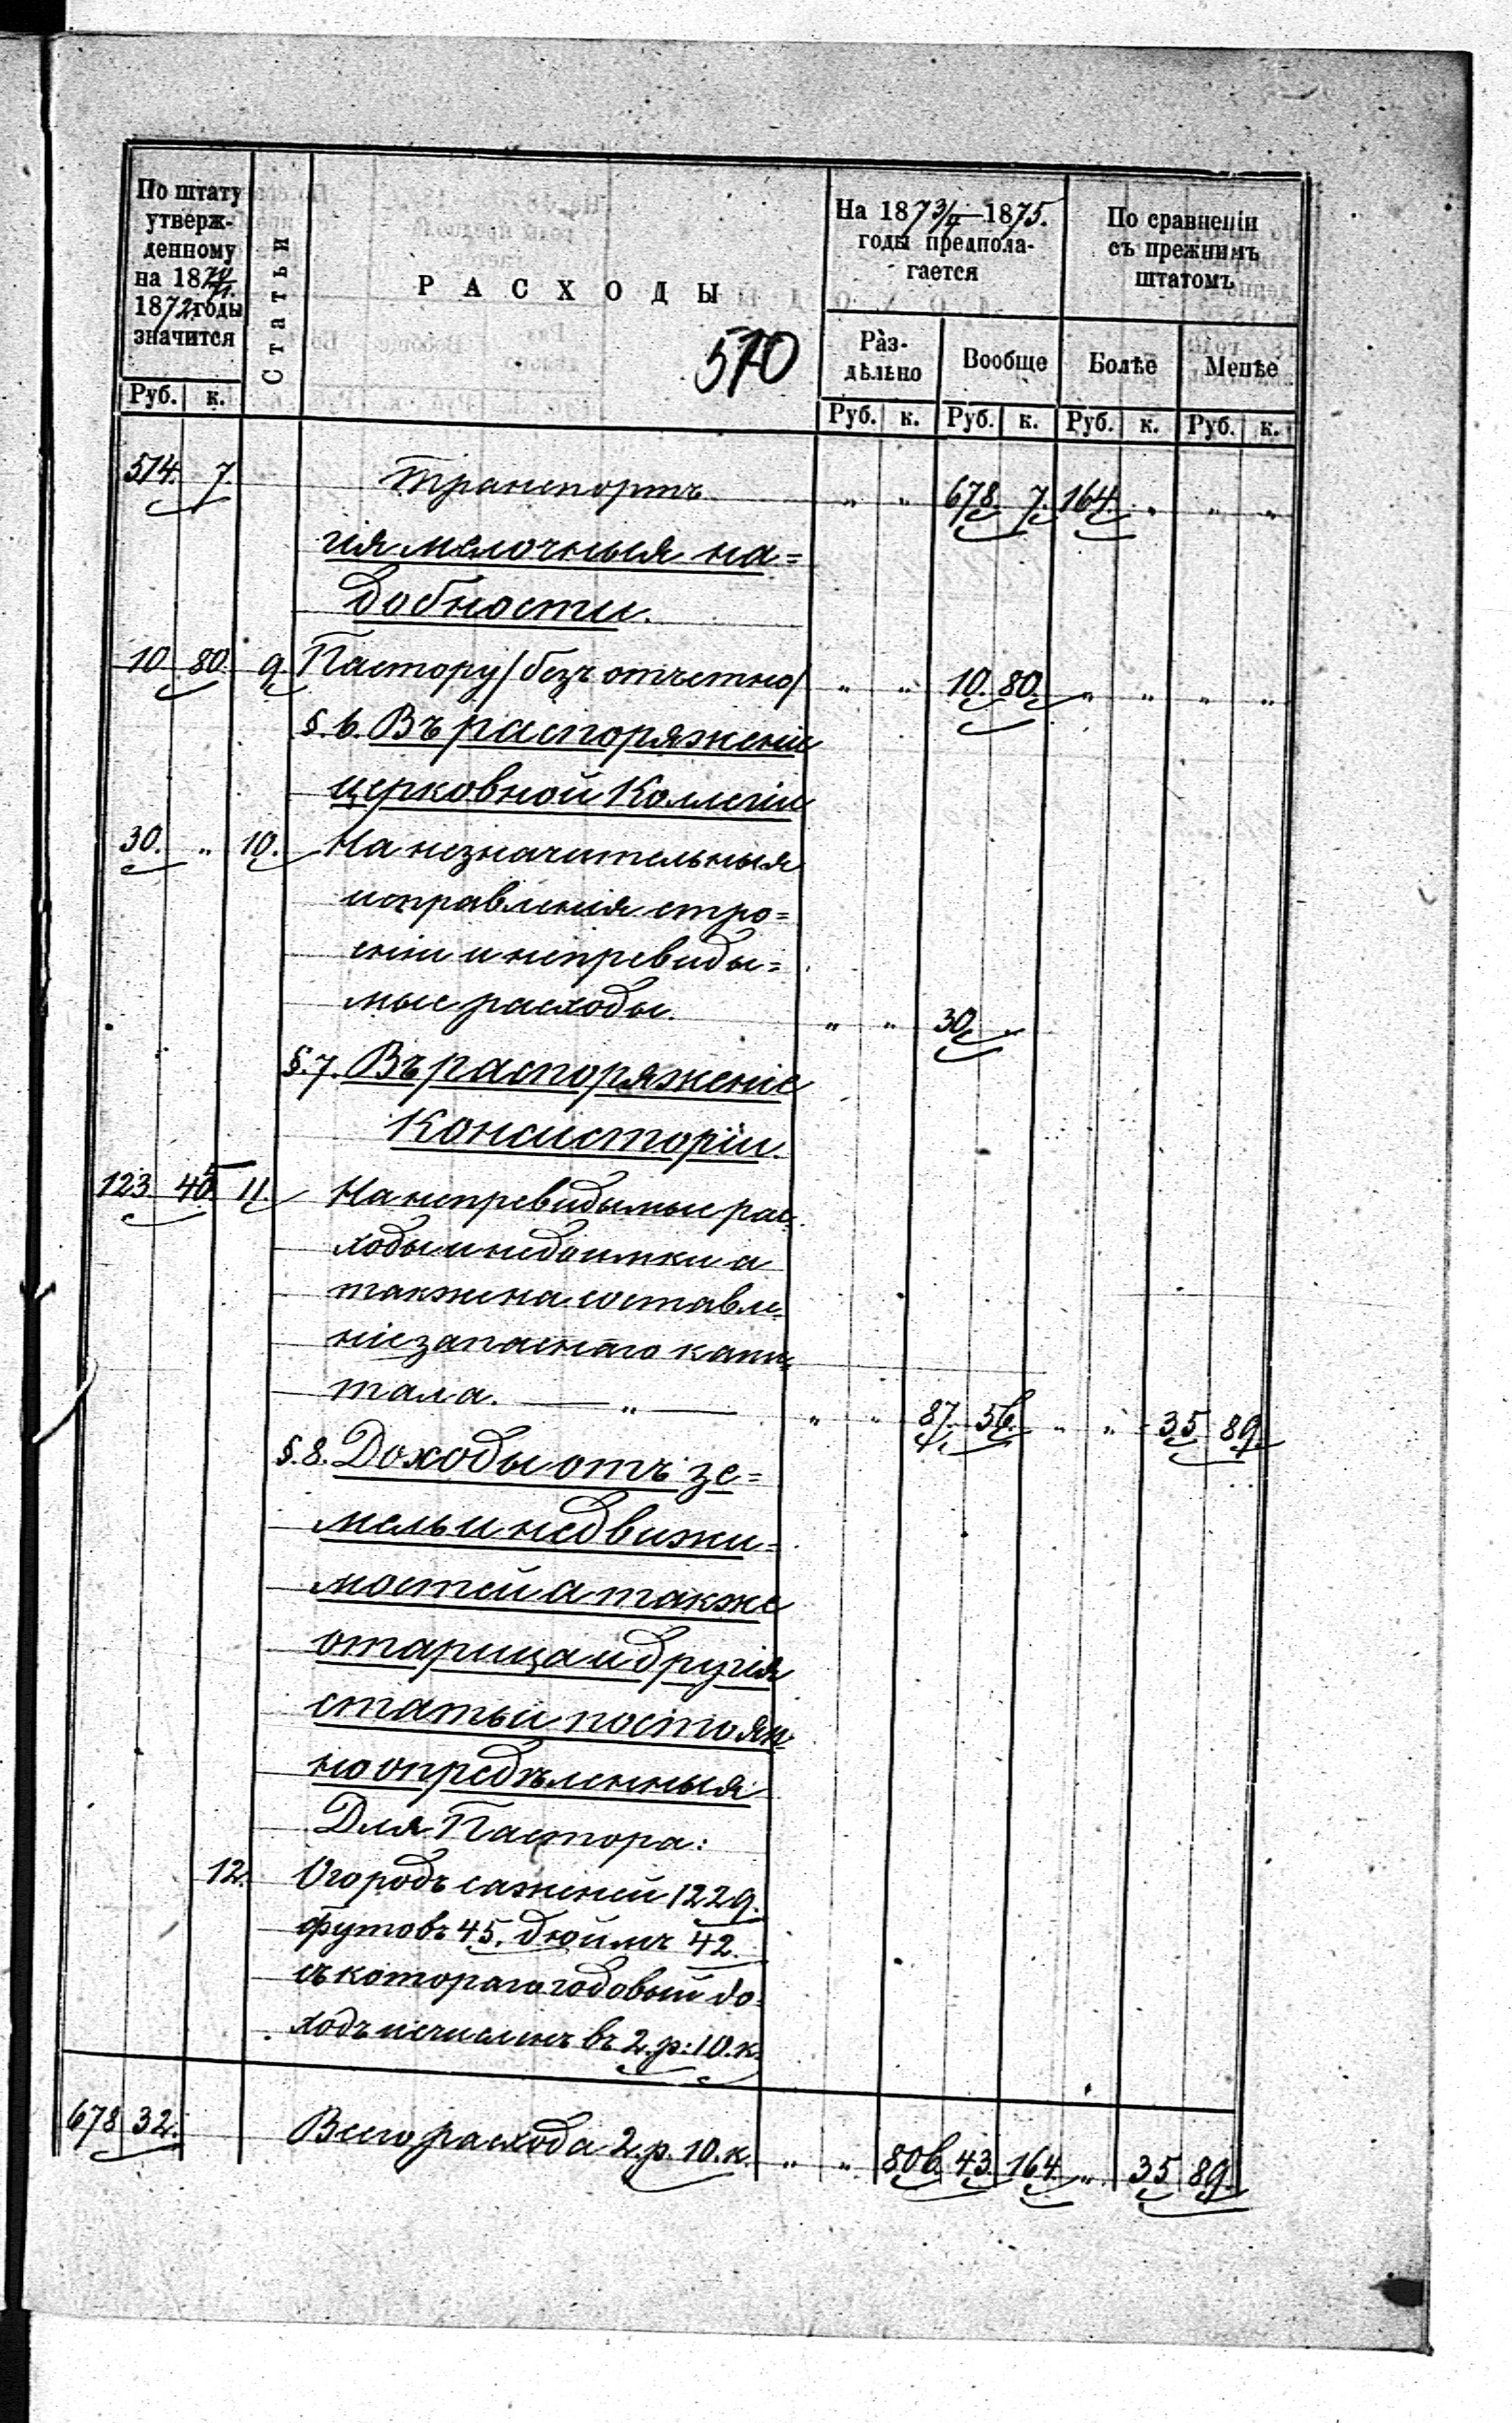 По штату
утверж-
денному
на 1870/71.
1872 годы
значится
Статьи
РАСХОДЫ
510
На 1873/4—1875.
годы предпола-
гается
По сравненіи
съ прежнимъ
штатомъ
Раз-
дѣльно
Вообще
Болѣе
Менѣе
Руб. к.
Руб. к. Руб. к. Руб. к. Руб. к.
514. 7. Транспортъ „ „ 678. 7. 164. „ „ „
гія мелочныя на=
добности.
10 80. 9. Пастору/безъ отчетно/ „ „ 10. 80. „ „ „ „
§. 6. Въ распоряженіе
церковной Коллегіи
30. „ 10. На незначительныя
исправленія стро=
еніи и непревиды=
мые расходы. „ „ 30. „
§. 7. Въ распоряженіе
Консисторіи.
123 45 11. На непревидымые рас=
ходы и недоимки а
также на составле=
ніе запаснаго капи=
тала. — „ — „ „ 87. 56. „ „ 35 89.
§. 8. Доходы отъ зе=
мель и недвижи=
мостей а также
отарица и другія
статьи постоян=
но опредѣленныя
Для Пастора:
12. Огородъ саженей 1229.
футовъ 45, дюймъ 42.
съ котораго годовый до=
ходъ исчисленъ въ 2. р: 10. к.
678 32. Всего расхода 2. р. 10. к. „ „ 806. 43. 164. „ 35 89.